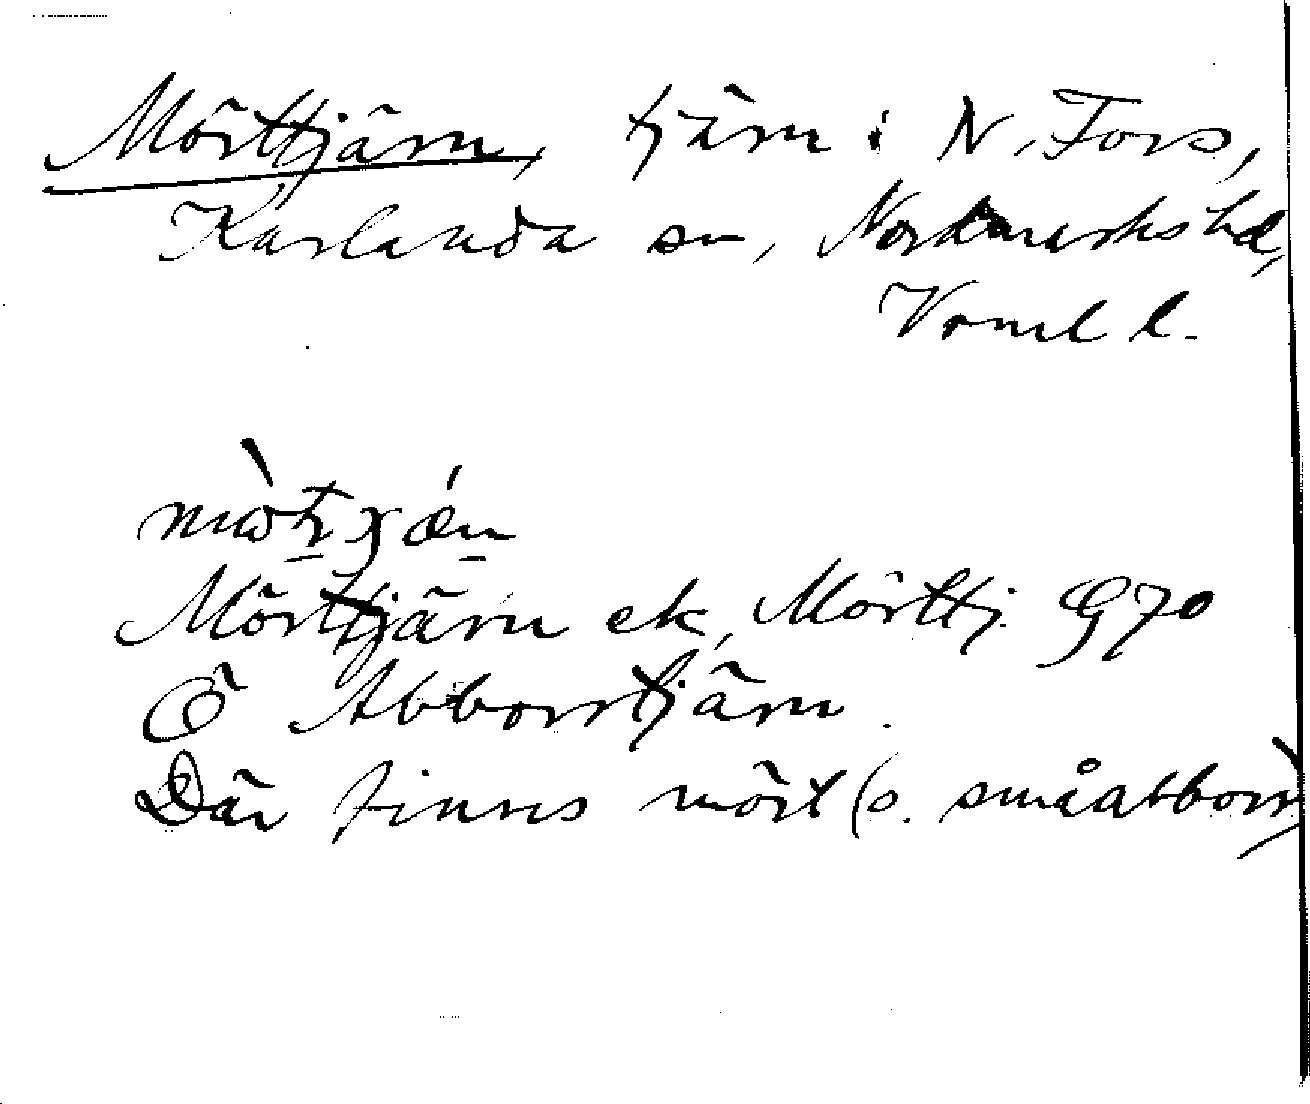 Mörttjärn, tjärn i N. Fors,
Karlanda sn, Nordmarks hd,
Vrml l.
Mörttjärn ek, Mörttj. G 70
Ö Abborrtjärn.
Där finns mört (o. småabborr)